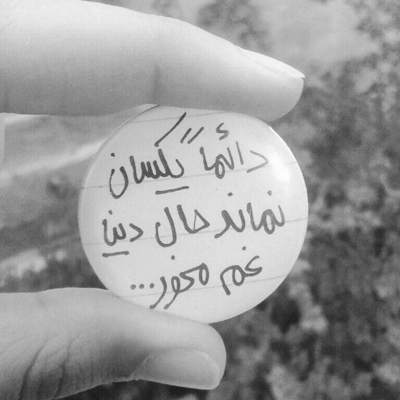 دائماً یکسان
نماند حال دنیا
غم مخور...